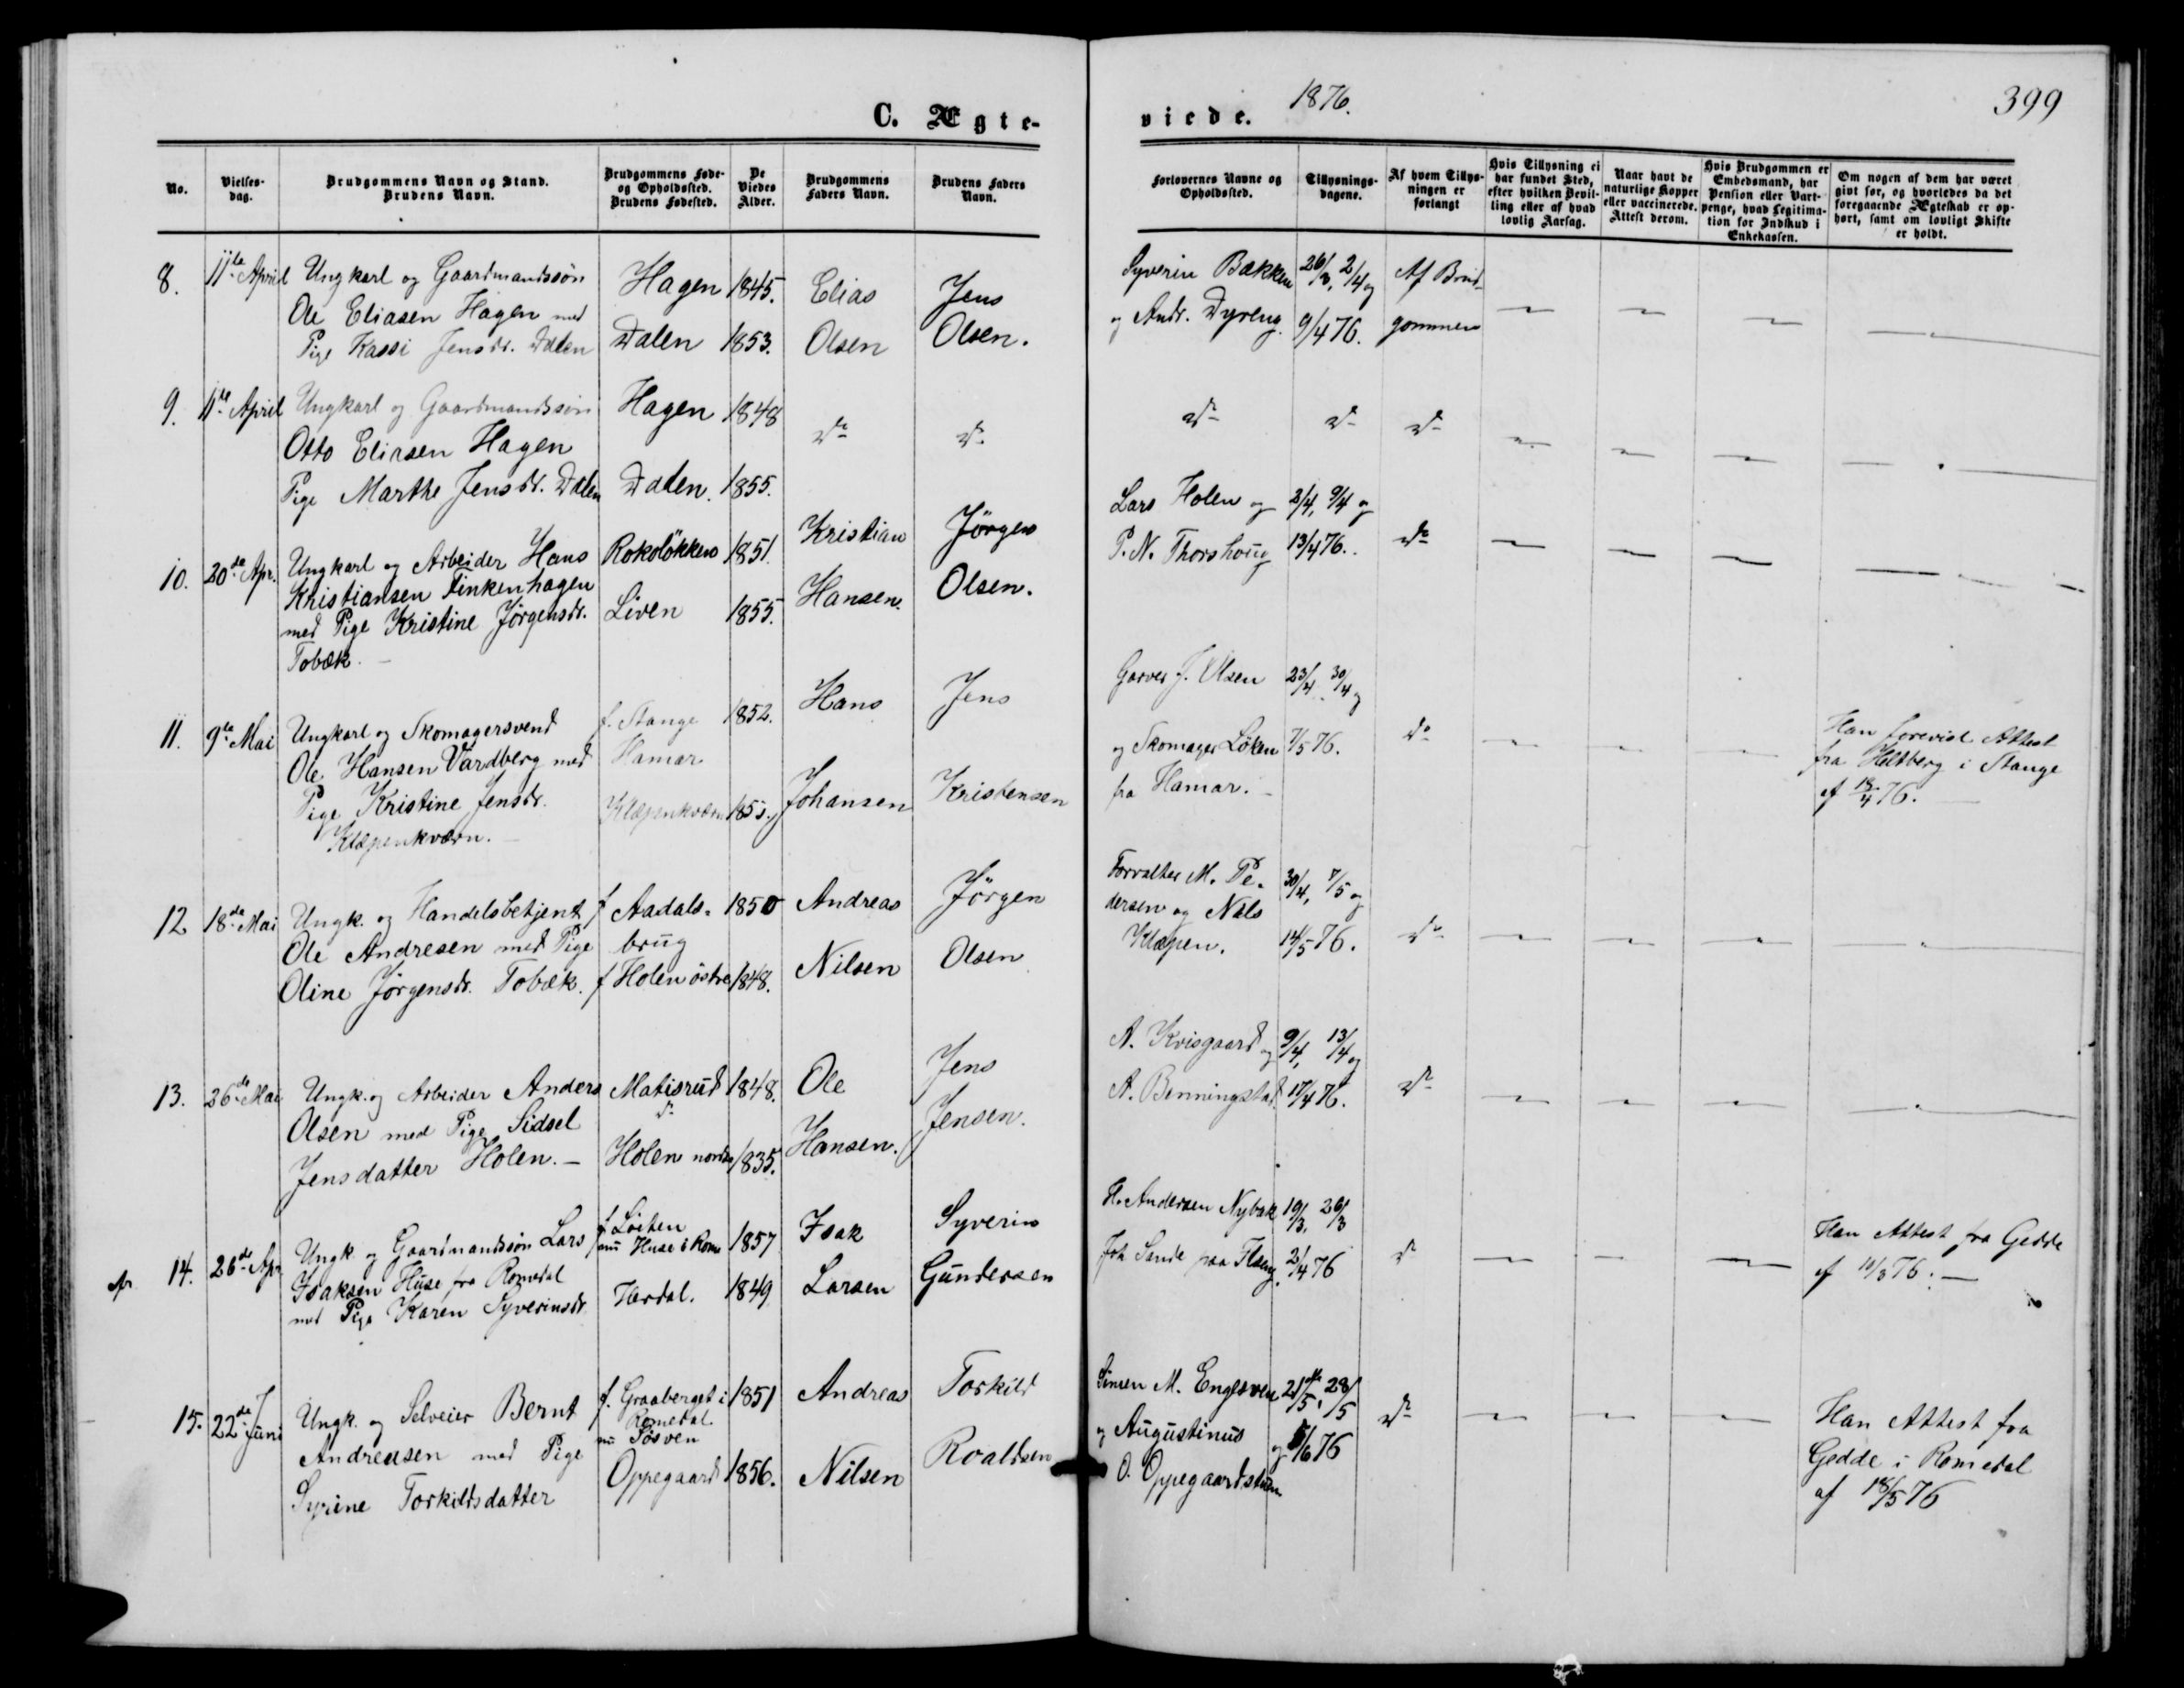 C. Ægte-
viede.
1876.
399
No.
Vielses-
dag.
Brudgommens Navn og Stand.
Brudens Navn.
Brudgommens Føde-
og Opholdssted.
Brudens Fødested.
De
Viedes
Alder.
Brudgommens
Faders Navn.
Brudens Faders
Navn.
Forlovernes Navne og
Opholdssted.
Tillysnings-
dagene.
Af hvem Tillys-
ningen er
forlangt
Hvis Tillysning ei
har fundet Sted,
efter hvilken Bevil-
ling eller af hvad
lovlig Aarsag.
Naar havt de
naturlige Kopper
eller vaccinerede.
Attest derom.
Hvis Brudgommen er
Embedsmand, har
Pension eller Vart-
penge, hvad Legitima-
tion for Indskud i
Enkekassen.
Om nogen af dem har været
givt før, og hvorledes da det
foregaaende Ægteskab er op-
hørt, samt om lovligt Skifte
er holdt.
8.
11te April
Ungkarl og Gaardmandssøn
Ole Eliasen Hagen med
Pige Kassi Jensdr. Dalen
Hagen
Dalen
1845.
1853.
Elias
Olsen
Jens
Olsen.
Syverin Bækken
og Andr. Dyreng.
26/3, 2/4 og
9/4 76.
Af Brud-
gommen
9.
11te April
Ungkarl og Gaardmandssøn
Otto Eliasen Hagen
Pige Marthe Jensdr. Dalen
Hagen
Dalen.
1848
1855.
do
do
do
do
do
10.
20de Apr.
Ungkarl og Arbeider Hans
Kristiansen Finkenhagen
med Pige Kristine Jørgensdr.
Tobæk.
Rokoløkken
Liven
1851.
1855.
Kristian
Hansen.
Jörgen
Olsen.
Lars Holen og
P. N. Thorshoug
2/4, 9/4 og
13/4 76.
do
11.
9de Mai
Ungkarl og Skomagersvend
Ole Hansen Vardberg med
Pige Kristine Jensdr.
Klæpenkværn.
f. Stange
Hamar
Klæpenkværn
1852.
Hans
Johansen
Jens
Kristensen
Garver J. Olsen
og Skomager Löken
fra Hamar.
23/4, 30/4 og
7/5 76.
do
Han forevist Attest
fra Heltberg i Stange
af 18/4 76.
12
18de Mai
Ungk. og Handelsbetjent
Ole Andresen med Pige
Oline Jørgensdr. Tobæk.
f Aadals-
brug
f Holen östre
1850
1848.
Andreas
Nilsen
Jörgen
Olsen
Forvalter M. Pe-
dersen og Nils
Klæpen.
30/4, 7/5 og
14/5 76.
do
13.
26de Mai
Ungk. og Arbeider Anders
Olsen med Pige Sidsel
Jensdatter Holen.
Matisrud
do
Holen nordre
1848.
1835.
Ole
Hansen.
Jens
Jensen.
A. Kvisgaard og
A. Benningstad
9/4, 13/4 og
17/4 76.
do
14.
26de Apr
Ungk. og Gaardmandssøn Lars
Isaksen Huse fra Romedal
med Pige Karen Syverinsdr.
f Löiten
nu Huse i Rome
Hordal.
1857
1849.
Isak
Larsen
Syverin
Gundersen
H. Andersen Nybak
Joh Sande paa Ilseng.
19/3, 26/3
2/4 76
do
Han Attest fra Gedde
af 11/3 76.
15.
22de Juni
Ungk. og Selveier Bernt
Andreasen med Pige
Syrine Torkildsdatter
f. Graaberget i
Romedal
nu Tösven
Oppegaard
1851
1856.
Andreas
Nilsen
Torkild
Roaldsen
Simen M. Engesven
og Augustinus
O. Oppegaardstuen.
21/5, 28/5
og 5/6 76
do
Han Attest fra
Gedde i Romedal
af 18/5 76